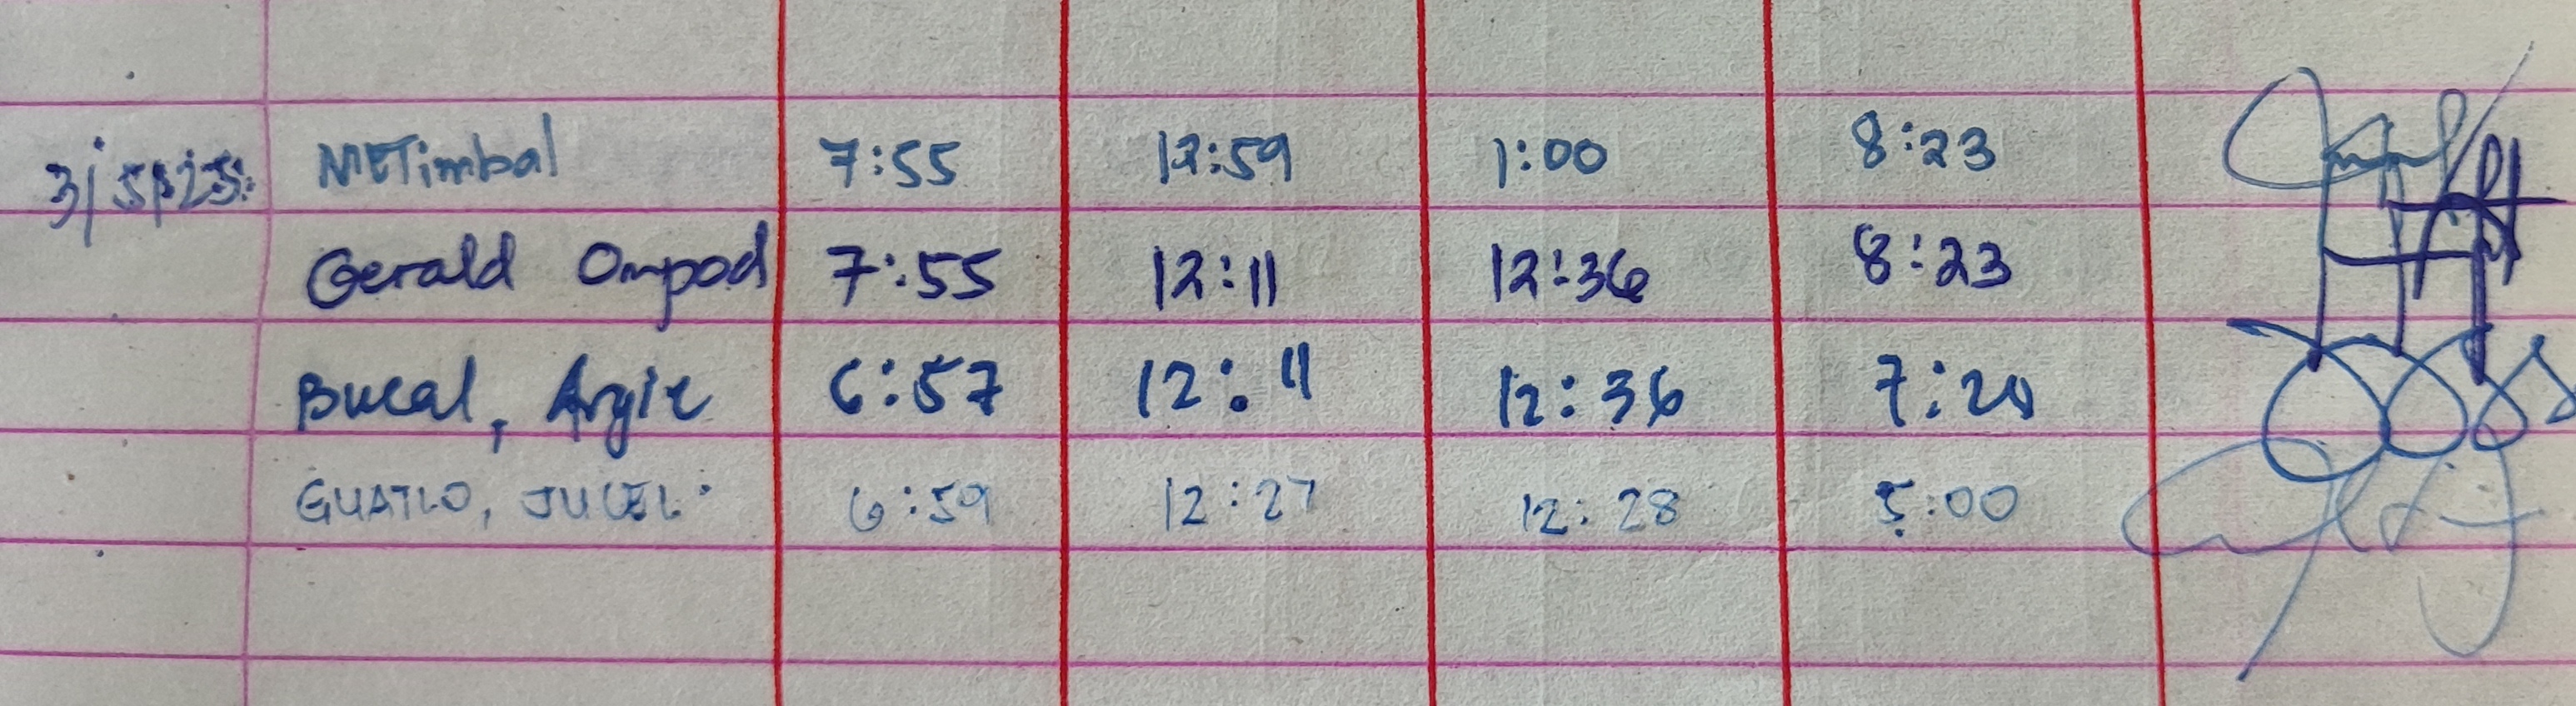 3/5/25 METimbal 7:55 12:59 1:00 8:23
Gerald Ompod 7:55 12:11 12:36 8:23
Bucal, Argie 6:57 12:11 12:36 7:20
GUATLO, JUCEL 6:59 12:27 12:28 5:00